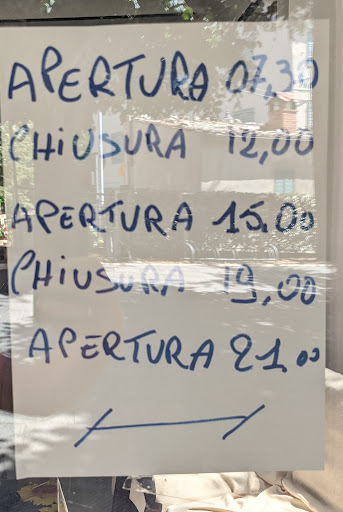 APERTURA 07,30
CHIUSURA 12,00
APERTURA 15.00
CHIUSURA 19,00
APERTURA 21.00